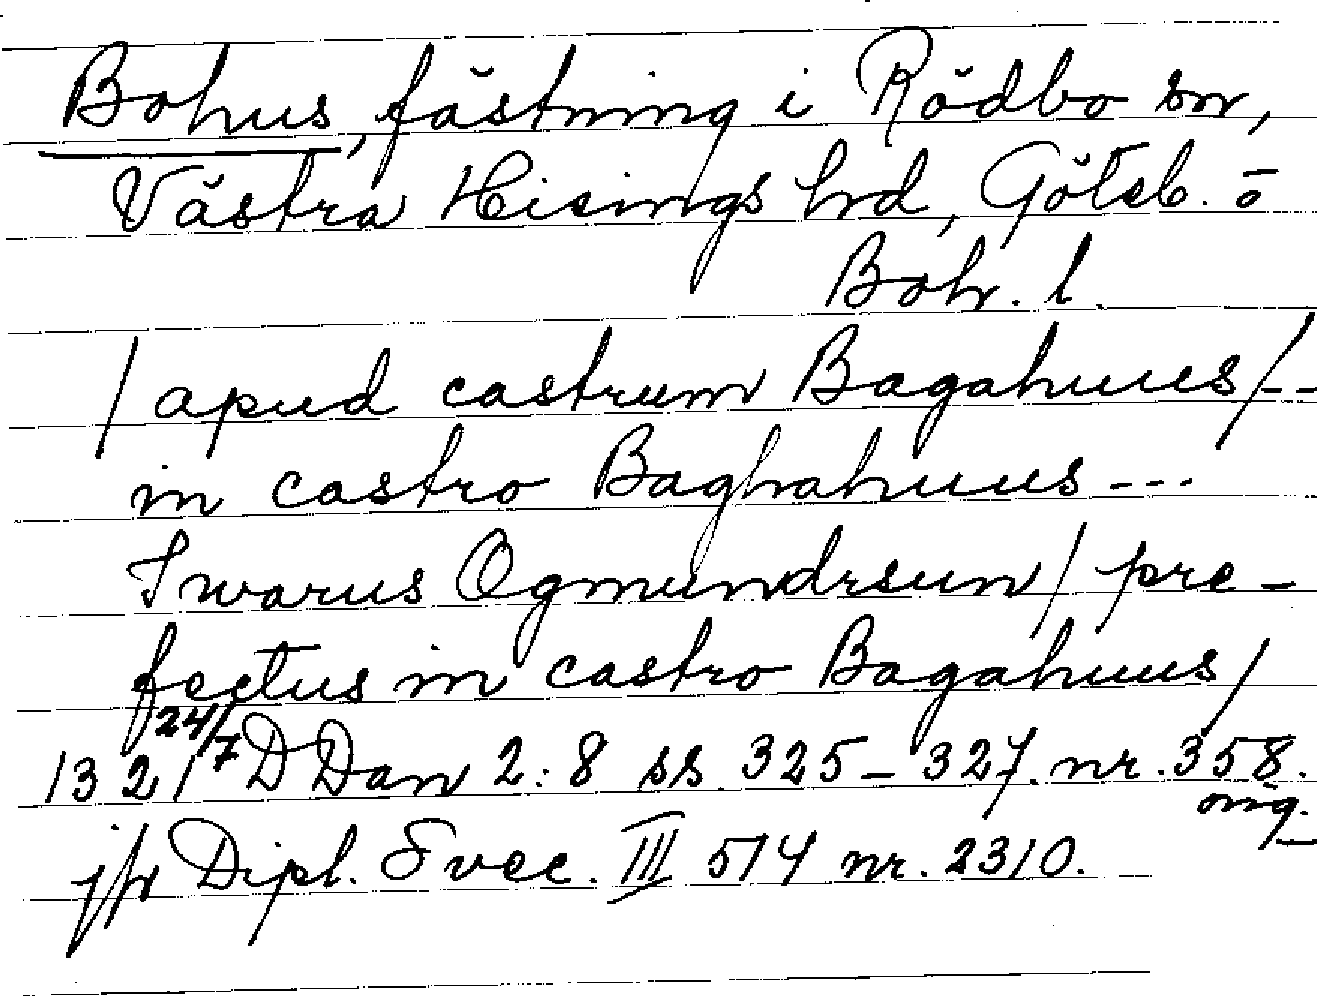 Bohus, fästning i Rödbo sn,
Västra Hisings hrd, Göteb. o
Boh. l.
/apud castrum Bagahuus/--
in castro Baghahuus ---
Iwarus Ogmundrsun/pre-
fectus in castro Bagahuus/
1321 24/7 DDan 2:8 ss 325-327. nr. 358.
orig.
jfr Dipl. Svec. III 514 nr. 2310.